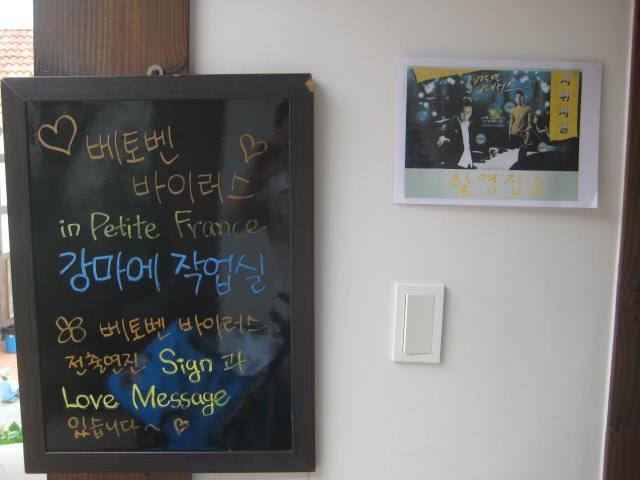 베토벤
바이러스
in Petite France
강마에 작업실
베토벤 바이러스
전출연진 Sign 과
Love Message
있습니다~
베토벤
바이러스
촬영장소